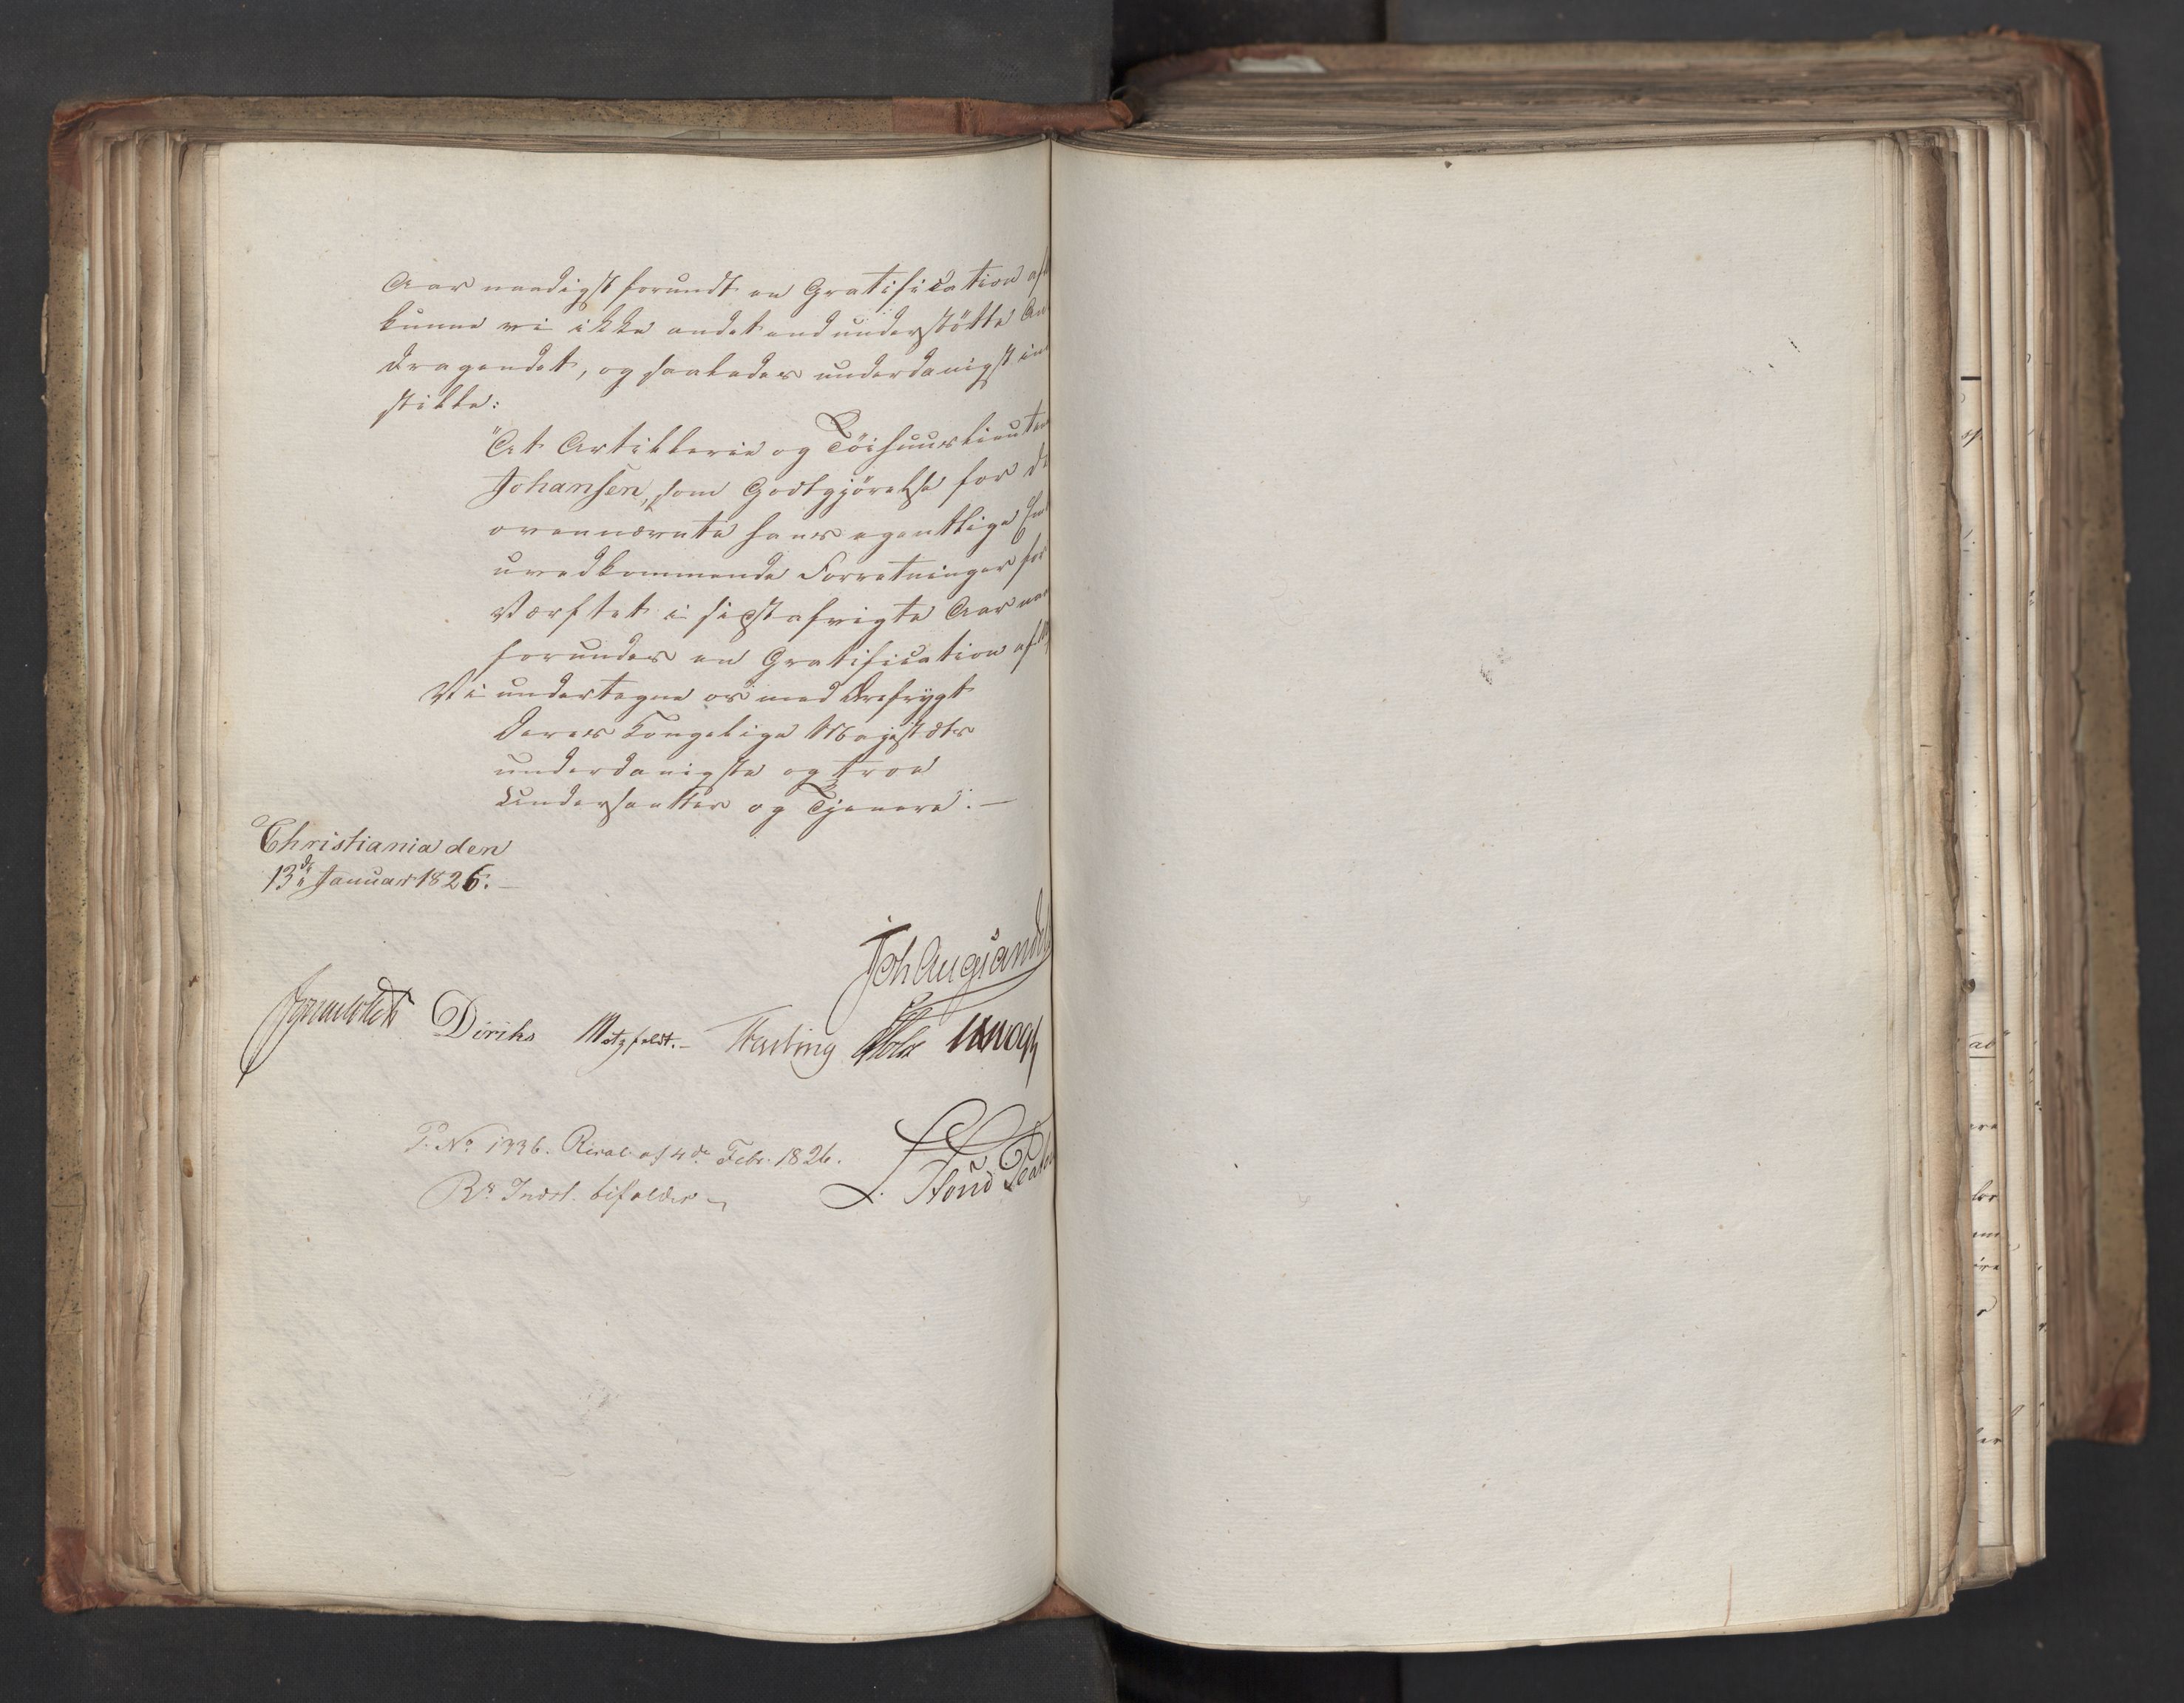 Aar naadigst forundt en Gratification af
kunne vi ikke andet end understøtte An
dragendet, og saaledes underdanigst ind
stille:
"At Artillerie og Töihuuslieuten
Johansen, som Godtgjörelse for de
ovennævnte hans egentlige
uvedkommende Forretninger for
Værftet i sidstafvigte Aar naa
forundes en Gratification af
Vi undertegne os med Ærefrygt
Deres Kongelige Majestæts
underdanigste og troe
Undersaatter og Tjenere. —
Christiania den
13de Januar 1826. —
Joh Aug Sandels
Diriks Motzfeldt. — Treschow
P. No 1336. Resol. af 4de Febr. 1826.
Rs Indst. bifaldes